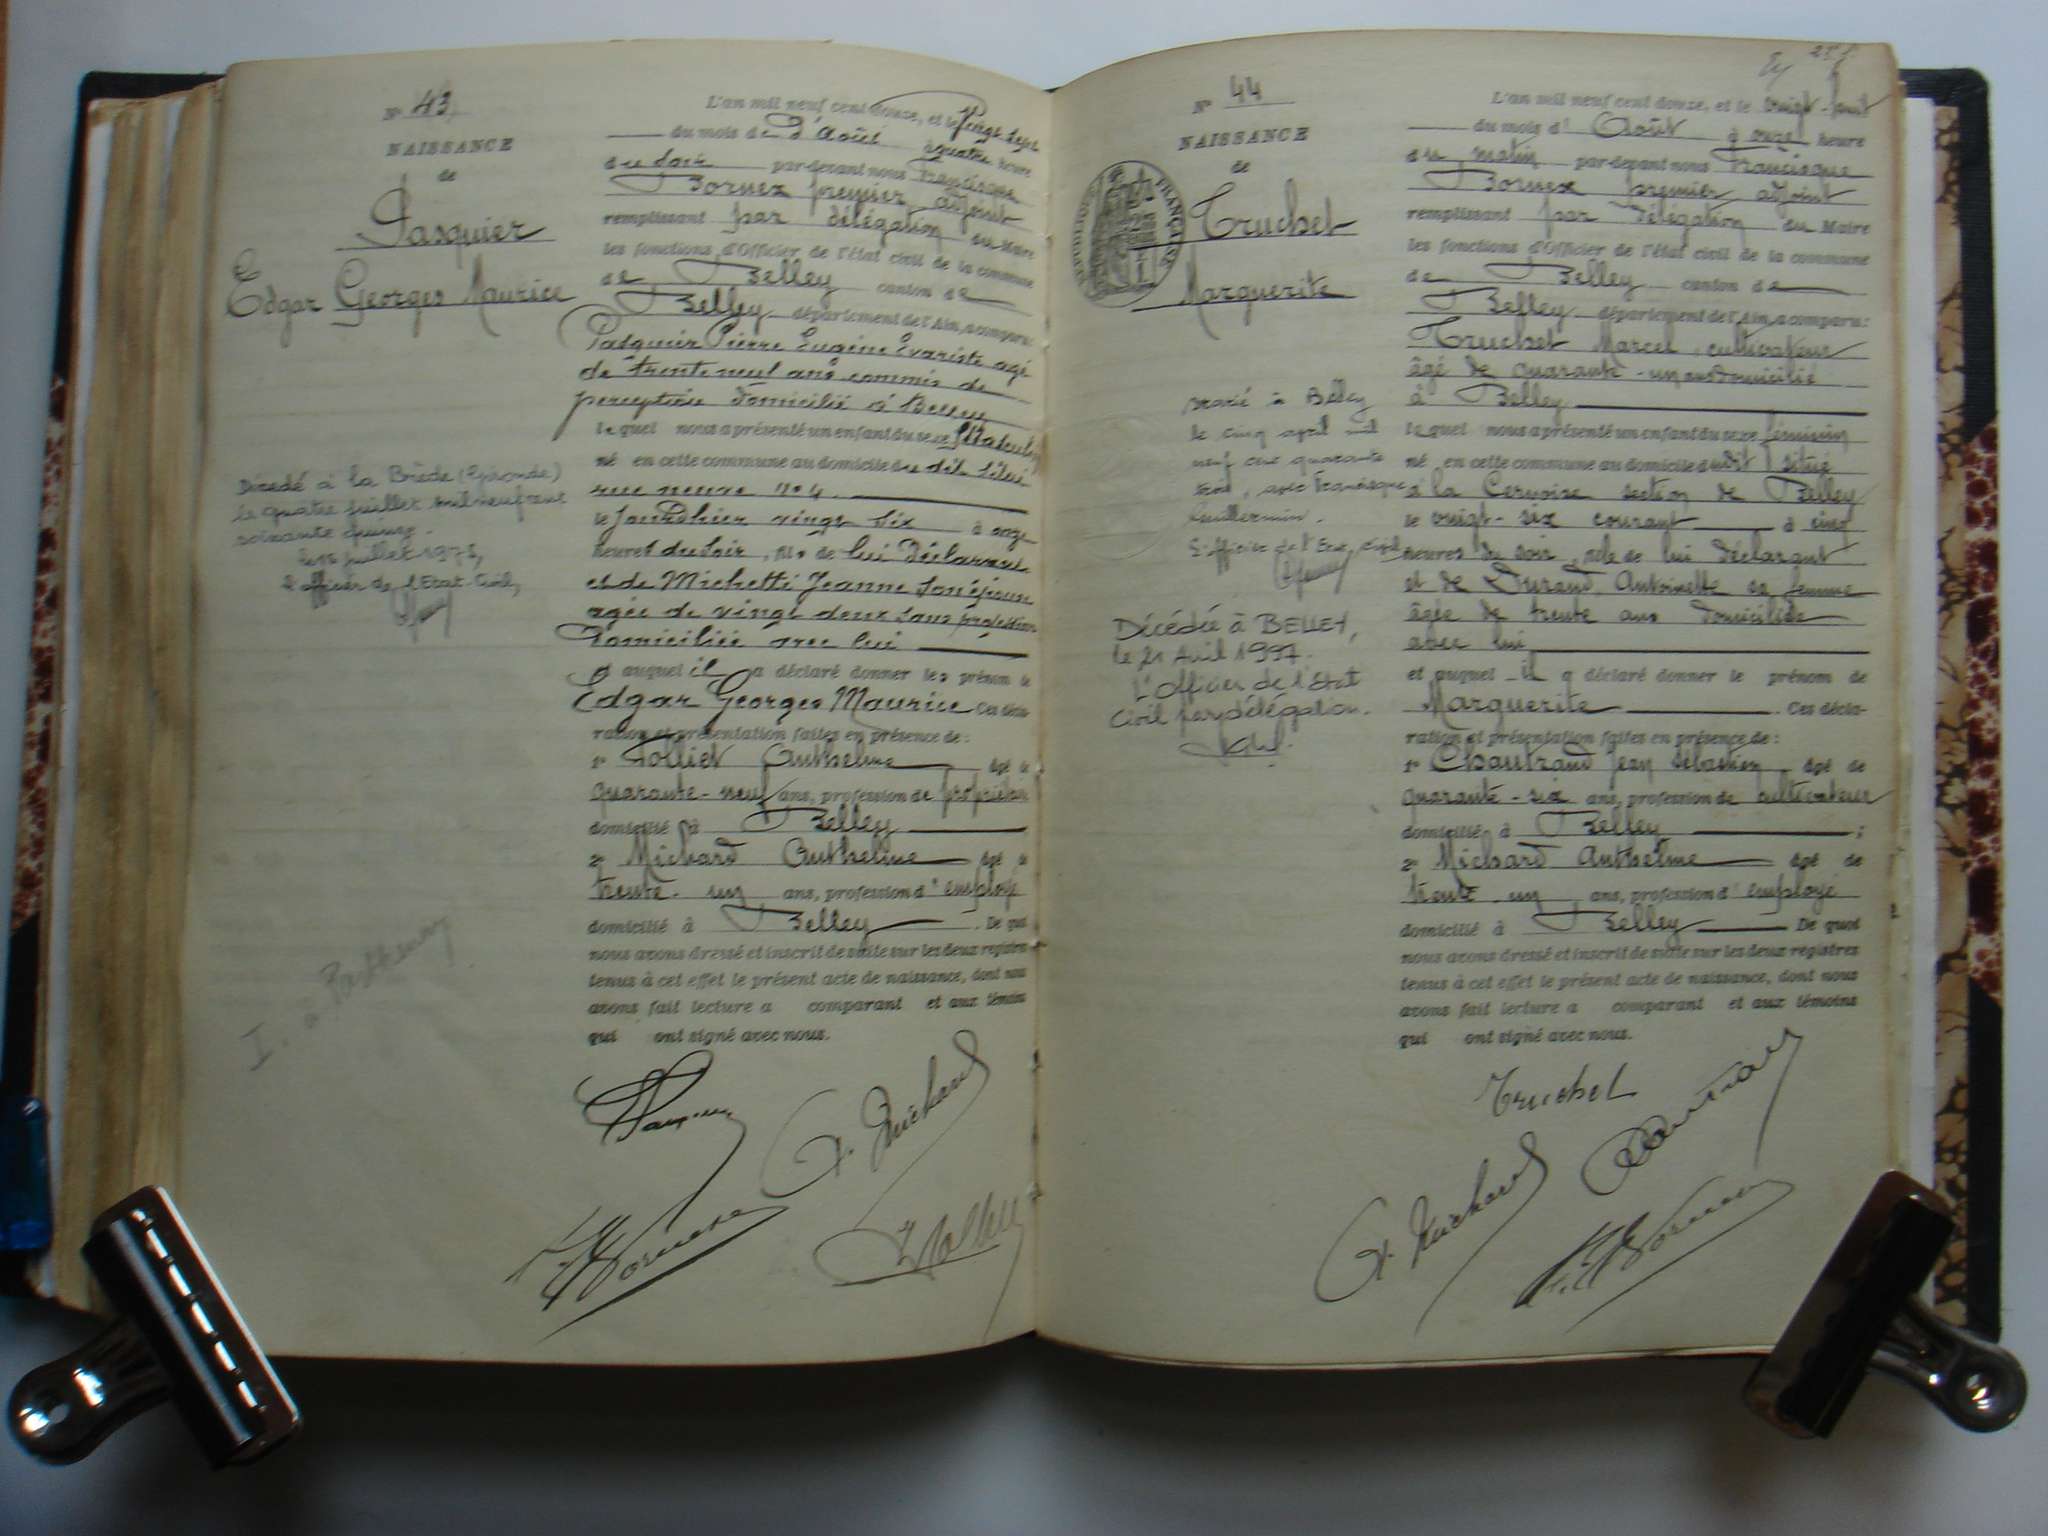 N° 43
NAISSANCE
de
Pasquier
Edgar Georges Maurice
Décédé à la Brède (Gironde)
le quatre juillet mil neuf cent
soixante quinze.
juillet 1975,
L'officier de l'Etat-Civil,
I. a Parthenay
L'an mil neuf cent douze, et le vingt sept
du mois de d'Août à quatre heure
du soir par-devant nous Francisque
Bornex premier adjoint
remplissant par délégation du Maire
les fonctions d'Officier de l'état civil de la commune
de Belley canton de
Belley département de l'Ain, a comparu:
Pasquier Pierre Eugène Evariste agé
de trente neuf ans commis de
perception domicilié à Belley
lequel nous a présenté un enfant du sexe Masculin
né en cette commune au domicile du dit situé
rue neuve n°4.
le jourd'hier vingt six à onze
heures du soir, fils de lui déclarant
et de Michetti Jeanne son épouse
agée de vingt deux sans profession
domiciliée avec lui
et auquel il a déclaré donner les prénom de
Edgar Georges Maurice Ces décla-
ration et présentation faites en présence de:
1° Tolliet Anthelme âgé de
quarante-neuf ans, profession de propriétaire
domicilié à Belley
2° Michard Anthelme âgé de
trente-un ans, profession d'employé
domicilié à Belley. De quoi
nous avons dressé et inscrit de suite sur les deux registres
tenus à cet effet le présent acte de naissance, dont nous
avons fait lecture a comparant et aux témoins
qui ont signé avec nous.
Pasquier
A. Michard
F. Bornex
Tolliet
N° 44
NAISSANCE
de
Truchet
Marguerite
Marié à Belley
le cinq avril mil
neuf cent quarante
trois, avec Francisque
Guillermin.
L'officier de l'Etat civil
Décédée à BELLEY,
le 21 Avril 1997.
L'Officier de l'Etat
Civil par délégation.
L'an mil neuf cent douze, et le vingt-huit
du mois d' Août à onze heure
du matin par-devant nous Francisque
Bornex premier adjoint
remplissant par délégation du Maire
les fonctions d'Officier de l'état civil de la commune
de Belley canton de
Belley département de l'Ain, a comparu:
Truchet Marcel, cultivateur
âgé de quarante-un ans domicilié
à Belley
lequel nous a présenté un enfant du sexe féminin
né en cette commune au domicile dudit situé
à la Cervoise section de Belley
le vingt-six courant à cinq
heures du soir, fille de lui déclarant
et de Durand Antoinette sa femme
âgée de trente ans domiciliée
avec lui
et auquel il a déclaré donner le prénom de
Marguerite. Ces décla-
ration et présentation faites en présence de:
1° Chautrand Jean Sébastien âgé de
quarante-six ans, profession de cultivateur
domicilié à Belley;
2° Michard Anthelme âgé de
trente-un ans, profession d'employé
domicilié à Belley De quoi
nous avons dressé et inscrit de suite sur les deux registres
tenus à cet effet le présent acte de naissance, dont nous
avons fait lecture a comparant et aux témoins
qui ont signé avec nous.
Truchet
A. Michard
F. Bornex